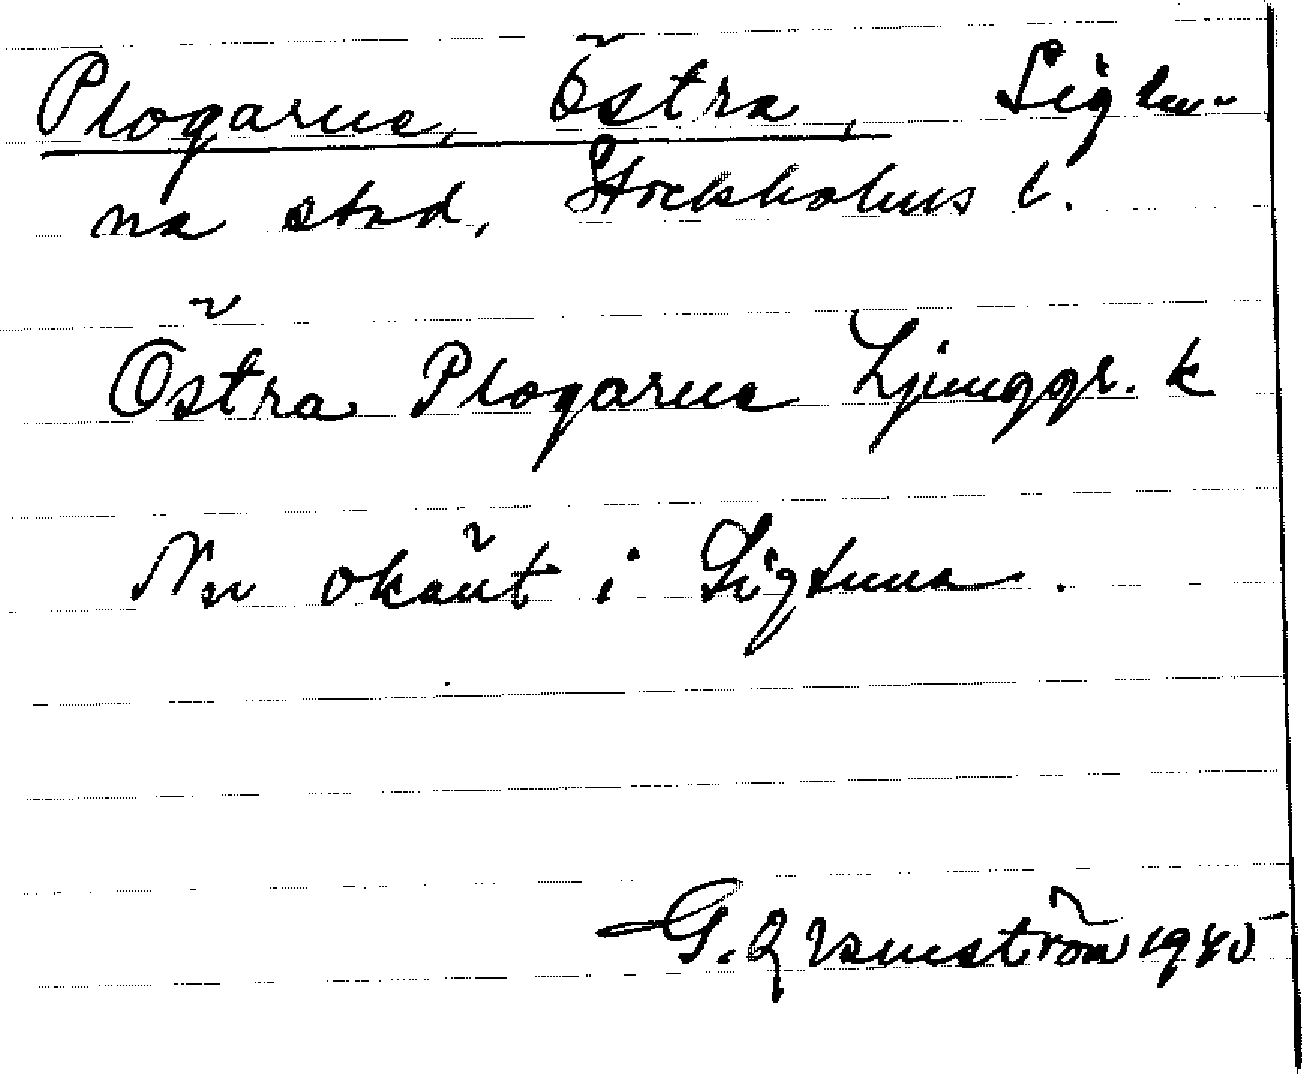 Plogarne, Östra, Sigtu-
na stad, Stockholms l.
Östra Plogarne Ljunggr. k
Nu okänt i Sigtuna.
G. Qvarnström 1940